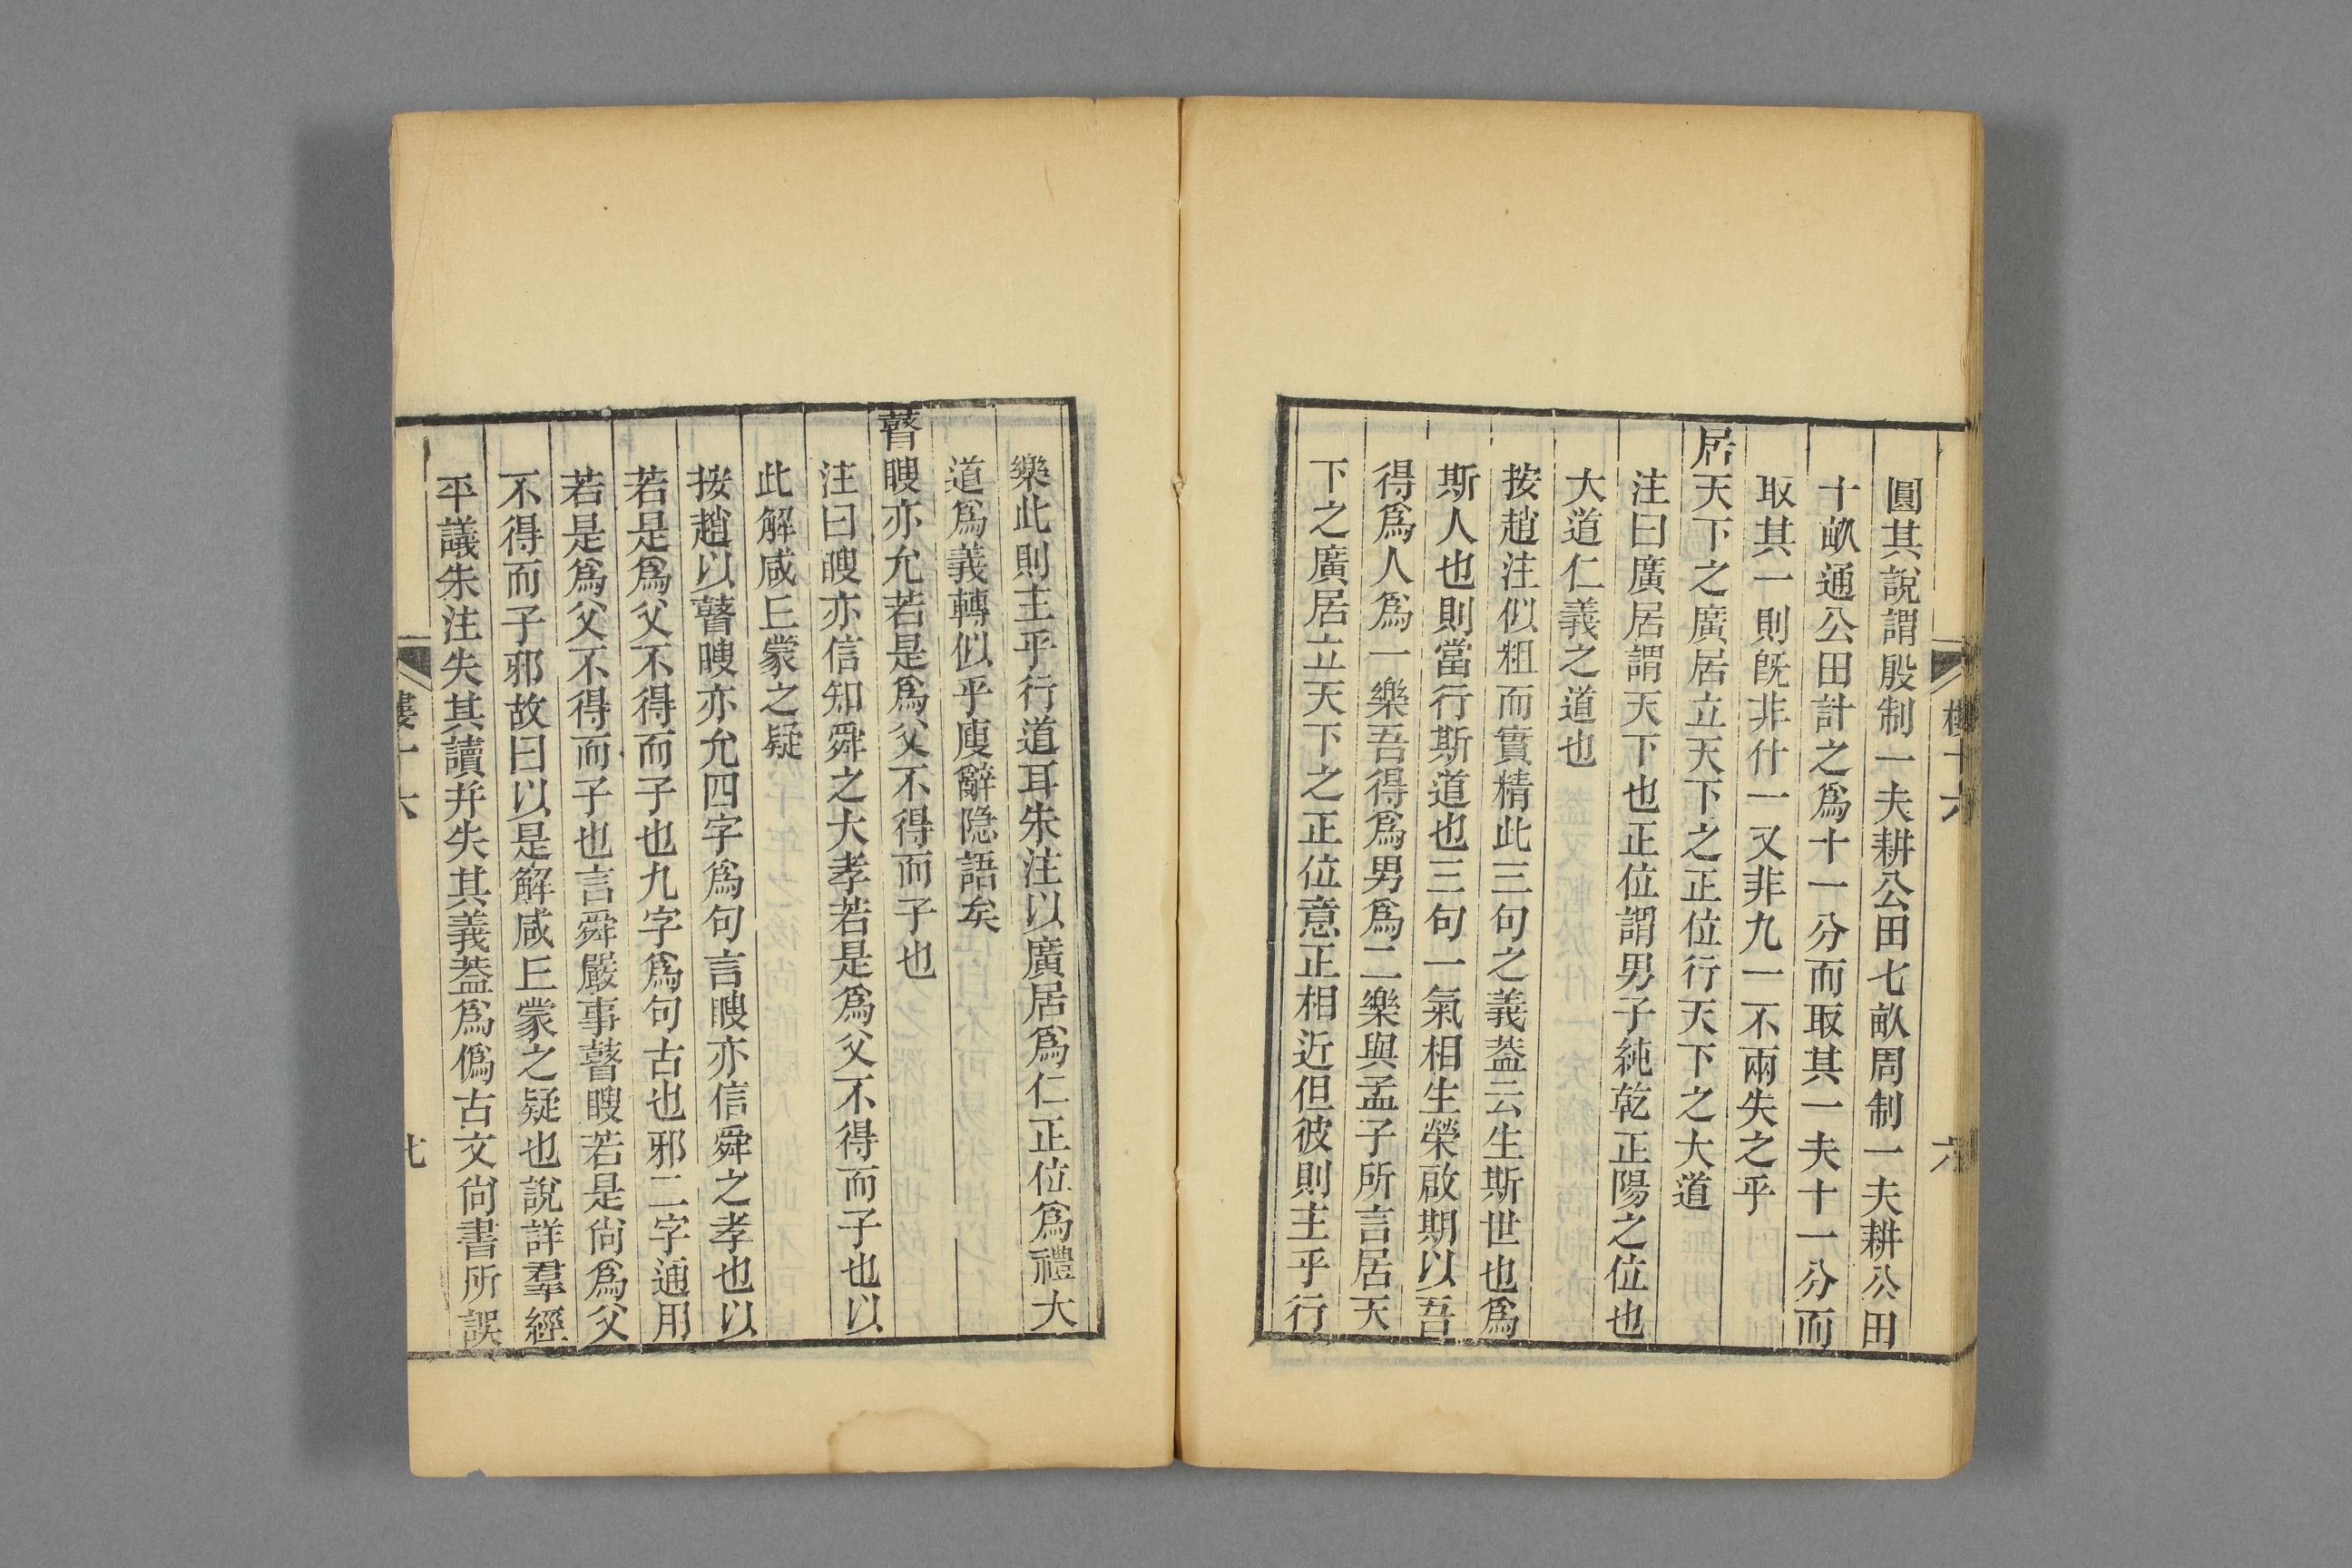 圓其說謂殷制一夫耕公田七畝周制一夫耕公田
十畝通公田計之爲十一分而取其一夫十一分而
取其一則旣非什一又非九一不兩失之乎
居天下之廣居立天下之正位行天下之大道
注曰廣居謂天下也正位謂男子純乾正陽之位也
大道仁義之道也
按趙注似粗而實精此三句之義葢云生斯世也爲
斯人也則當行斯道也三句一氣相生榮啟期以吾
得爲人爲一樂吾得爲男爲二樂與孟子所言居天
下之廣居立天下之正位意正相近但彼則主乎行
樂此則主乎行道耳朱注以廣居爲仁正位爲禮大
道爲義轉似乎廋辭隐語矣
瞽瞍亦允若是爲父不得而子也
注曰瞍亦信知舜之大孝若是爲父不得而子也以
此解咸丘蒙之疑
按趙以瞽瞍亦允四字爲句言瞍亦信舜之孝也以
若是爲父不得而子也九字爲句古也邪二字通用
若是爲父不得而子也言舜嚴事瞽瞍若是尙爲父
不得而子邪故曰以是解咸丘蒙之疑也說詳羣經
平議朱注失其讀并失其義葢爲僞古文尙書所誤
樓十六
六